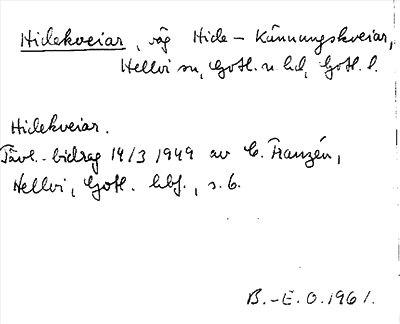 Hidekveiar, väg Hide - Kännungskveiar,
Hellvi sn, Gotl. n. hd, Gotl. l.
Hidekveiar.
Tävl.-bidrag 14/3 1949 av C. Franzén,
Hellvi, Gotl. hbf., s. 6.
B.-E. O. 1961.